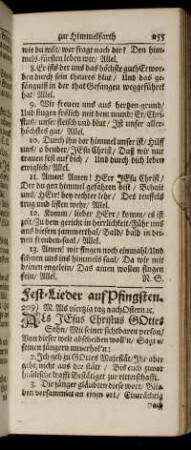 zur Himmelfarth 255
wie du wilt/ wer fragt nach dir? Den him-
mels-fürsten leben wir/ Allel.
8. Er ist der uns das höchste guth Erwor-
ben durch sein theures blut/ Und das ge-
fängnuß in der that Gefangen weggeführet
hat. Allel.
9. Wir freuen uns aus hertzen-grund/
Und singen frölich mit dem mund: Er/ Chri-
stus/ unser fleisch und blut/ Ist unser aller-
höchstes gut/ Allel.
10. Durch ihn der himmel unser ist/ Hilff
uns/ o bruder/ JEsu Christ/ Daß wir nur
trauen fest auf dich/ Und durch dich leben
ewiglich/ Allel.
11. Amen! Amen! HErr JEsu Christ/
Der du gen himmel gefahren bist/ Behalt
uns/ HErr/ bey rechter lehr/ Des teuffels
trug und listen wehr/ Allel.
12. Komm/ lieber HErr/ komm/ es ist
zeit/ Zu dem gericht in herrlichkeit/ Führ uns
aus diesem jammerthal/ Bald/ bald in den
freuden-saal/ Allel.
13. Amen! wir singen noch einmahl/ Und
sehnen uns ins himmels saal/ Da wir mit
deinen engelein/ Das amen wollen singen
fein/ Allel. N. S.
Fest-Lieder auf Pfingsten.
209) M. Als viertzig tag nach Ostern ꝛc.
Als JEsus Christus GOttes
Sohn/ Mit seiner sichtbaren person/
Von dieser welt abscheiden wolt'n/ Sagt er
seinen jüngern unverhol'n:
2. Ich geh zu GOttes Majestät/ Ihr aber
geht nicht aus der stadt/ Bis euch zuvor
Bestätiget zur ritterschafft.
3. Die jünger gläubten diese wort/ Blie-
ben versammlet an einem ort/ Einträchtig